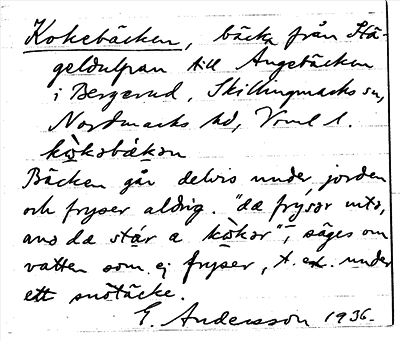 Kokebäcken, bäck från Stå-
geldulpan till Ängebäcken
i Bergerud, Skillingmarks sn,
Nordmarks hd, Vrml l.
kòkəbækən
Bäcken går delvis under jorden
och fryser aldrig. "dæ frysər intə,
anə dæ står a kòkər", säges om
vatten som ej fryser, t. ex. under
ett snötäcke.
E. Andersson 1936.